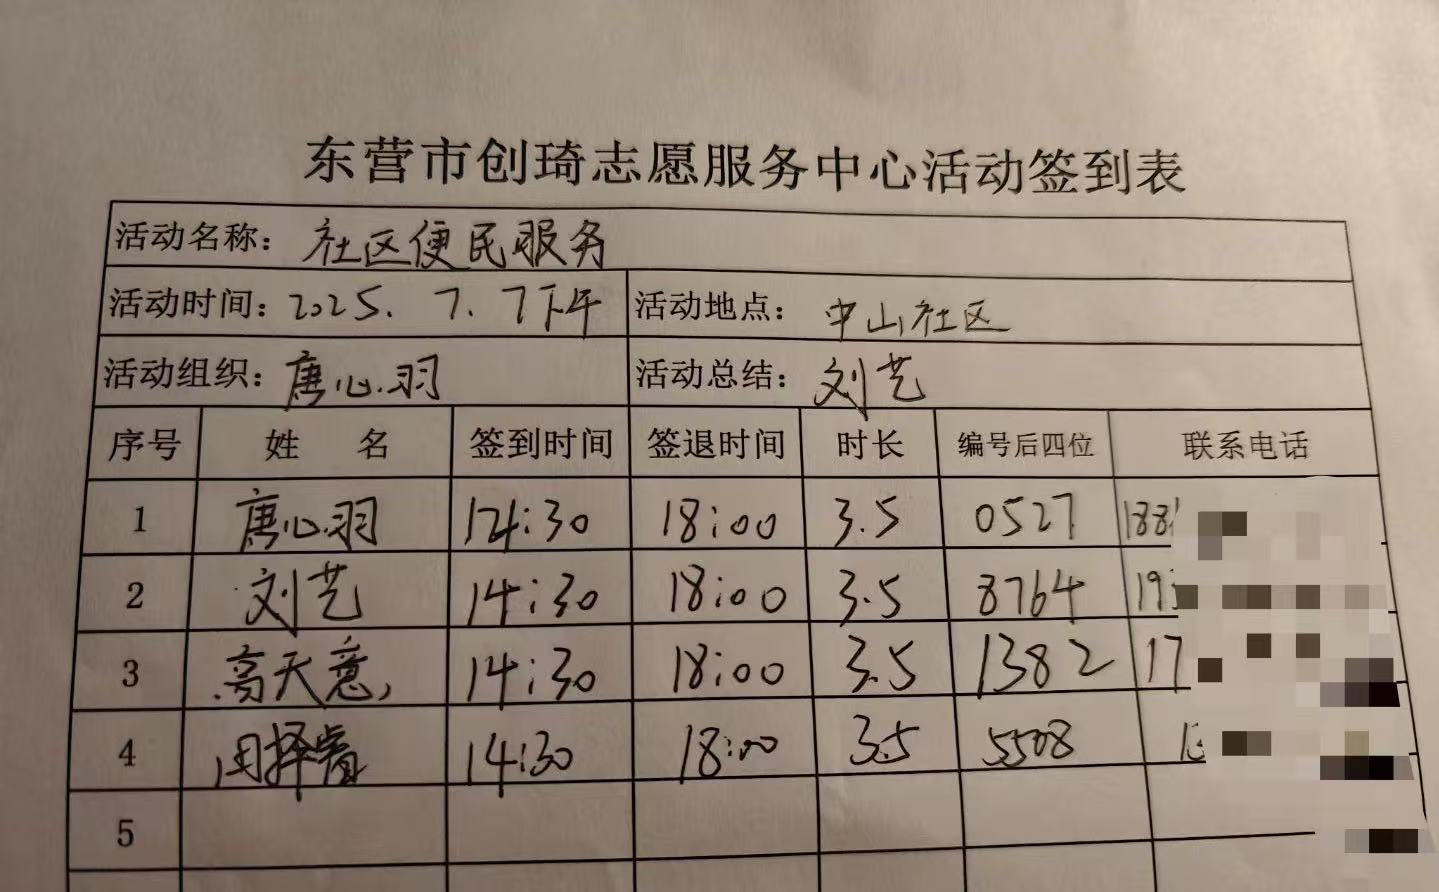 东营市创琦志愿服务中心活动签到表
活动名称：社区便民服务
活动时间：2025.7.7下午 活动地点：中山社区
活动组织：唐心羽 活动总结：刘艺
序号 姓名 签到时间 签退时间 时长 编号后四位 联系电话
1 唐心羽 14:30 18:00 3.5 0527 188
2 刘艺 14:30 18:00 3.5 8764 19
3 高天意 14:30 18:00 3.5 1382 17
4 14:30 18:00 3.5 5508
5